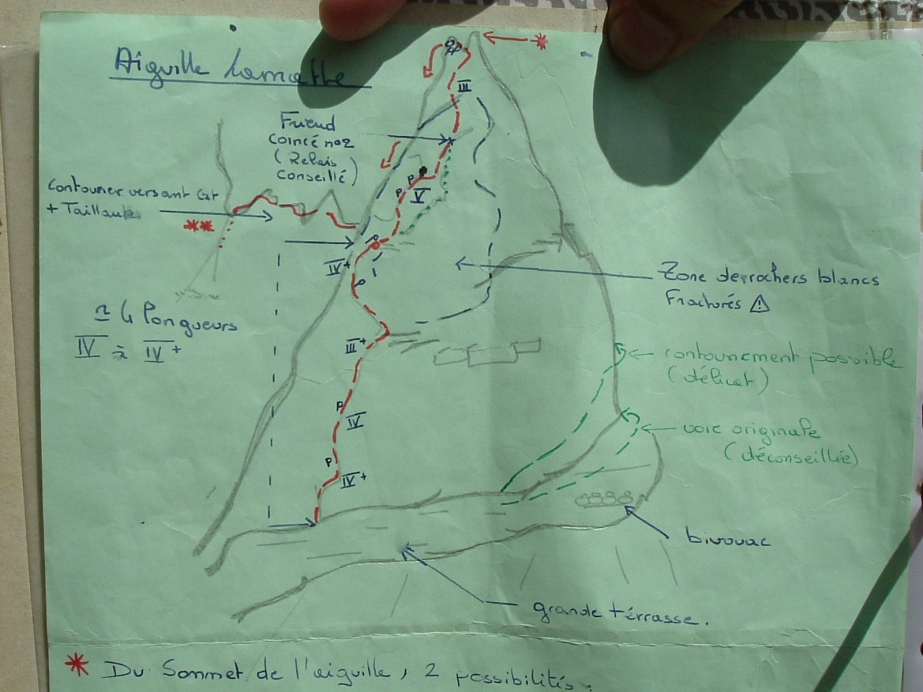 Aiguille Lamathe
*
III
Friend
coincé n°2
(Relais
conseillé)
p p
V
contourner versant Est
+ Taillante
**
IV+
p
p
≃ 4 longueurs
IV à IV+
Zone de rochers blancs
Fracturés ⚠
III+
contournement possible
(délicat)
p
IV
voie originale
(déconseillée)
p
IV+
bivouac
grande térrasse.
* Du Sommet de l'aiguille, 2 possibilités :